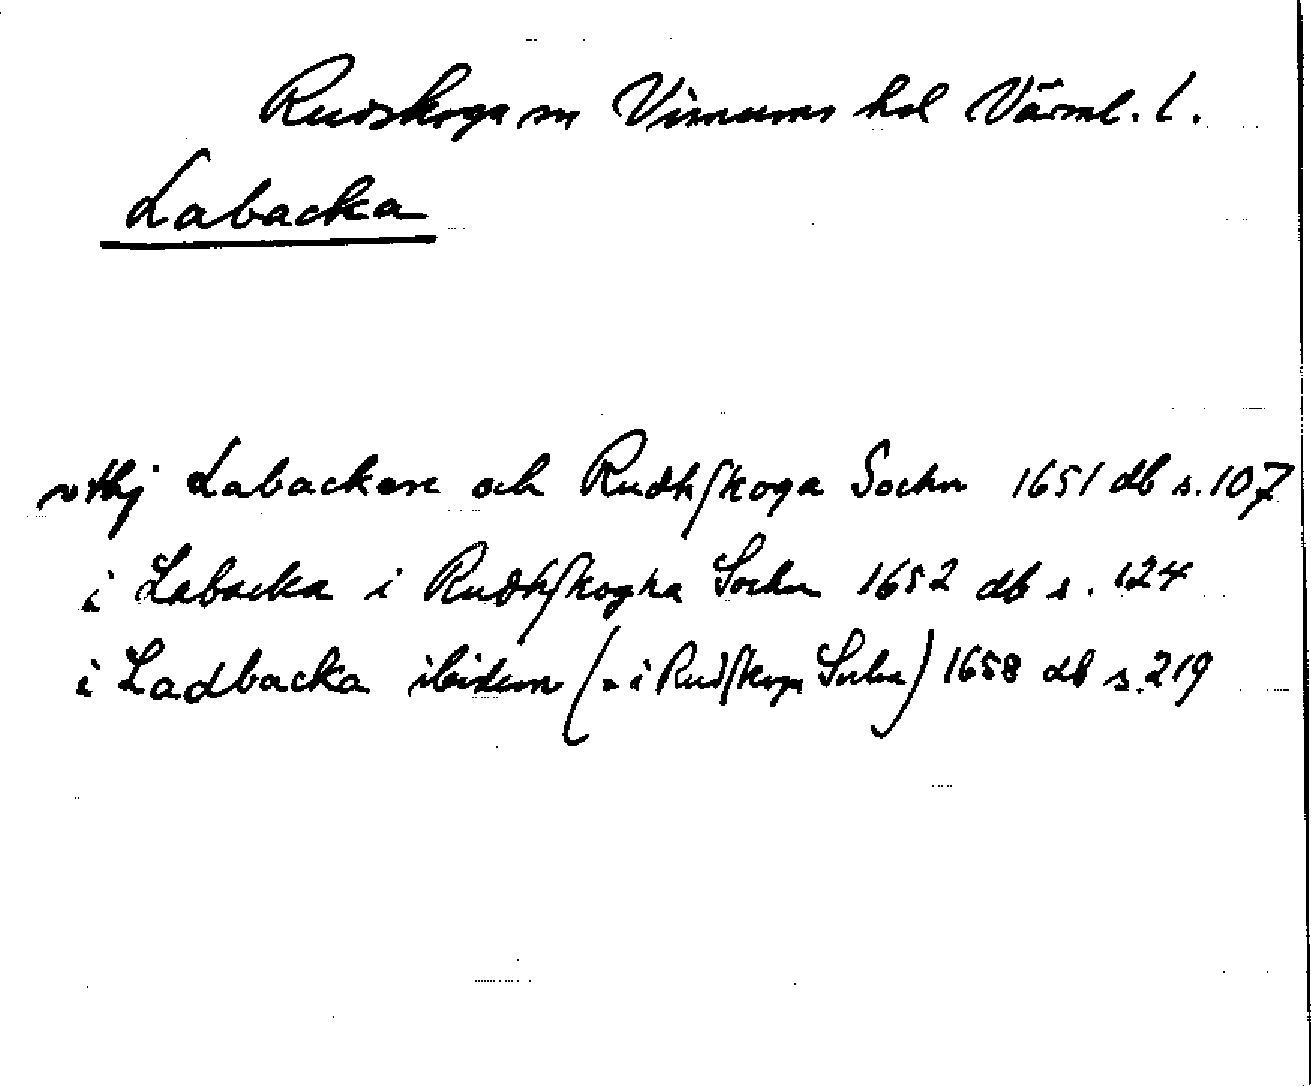 Rudskoga sn Visnums hd Värml. l.
Labacka
vthj Labackan och Rudhſkoga Sochn 1651 db s. 107
i Labacka i Rudhſkogha Sochn 1652 db s. 124
i Ladbacka ibidem (= i Rudſkoga Sochn) 1658 db s. 219